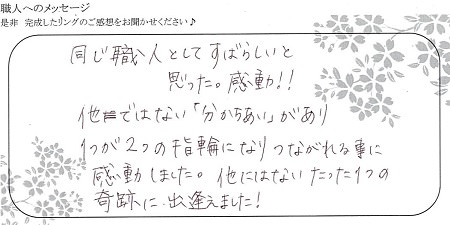 職人へのメッセージ
是非 完成したリングのご感想をお聞かせください♪
同じ職人としてすばらしいと
思った。感動!!
他ではない「分かちあい」があり
1つが2つの指輪になりつながれる事に
感動しました。他にはないたった1つの
奇跡に出逢えました!